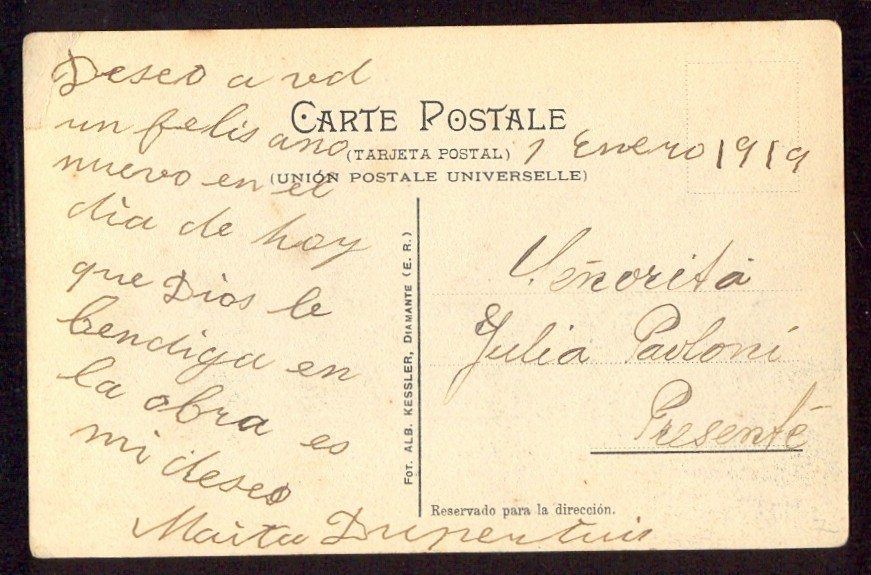 Deseo a vd
un felis ano
nuevo en el
dia de hoy
que Dios le
bendiga en
la obra es
mi deseo
CARTE POSTALE
(TARJETA POSTAL)
1 Enero 1919
(UNIÓN POSTALE UNIVERSELLE)
FOT. ALB. KESSLER, DIAMANTE (E. R.)
Señorita
Julia Paoloni
Presente
Reservado para la dirección.